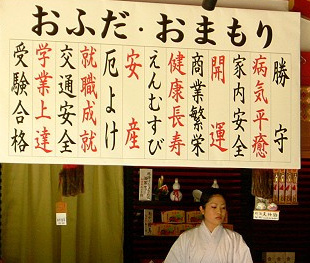 おふだ・おまもり
勝守
病気平癒
家内安全
開運
商業繁栄
健康長寿
えんむすび
安産
厄よけ
就職成就
交通安全
学業上達
受験合格